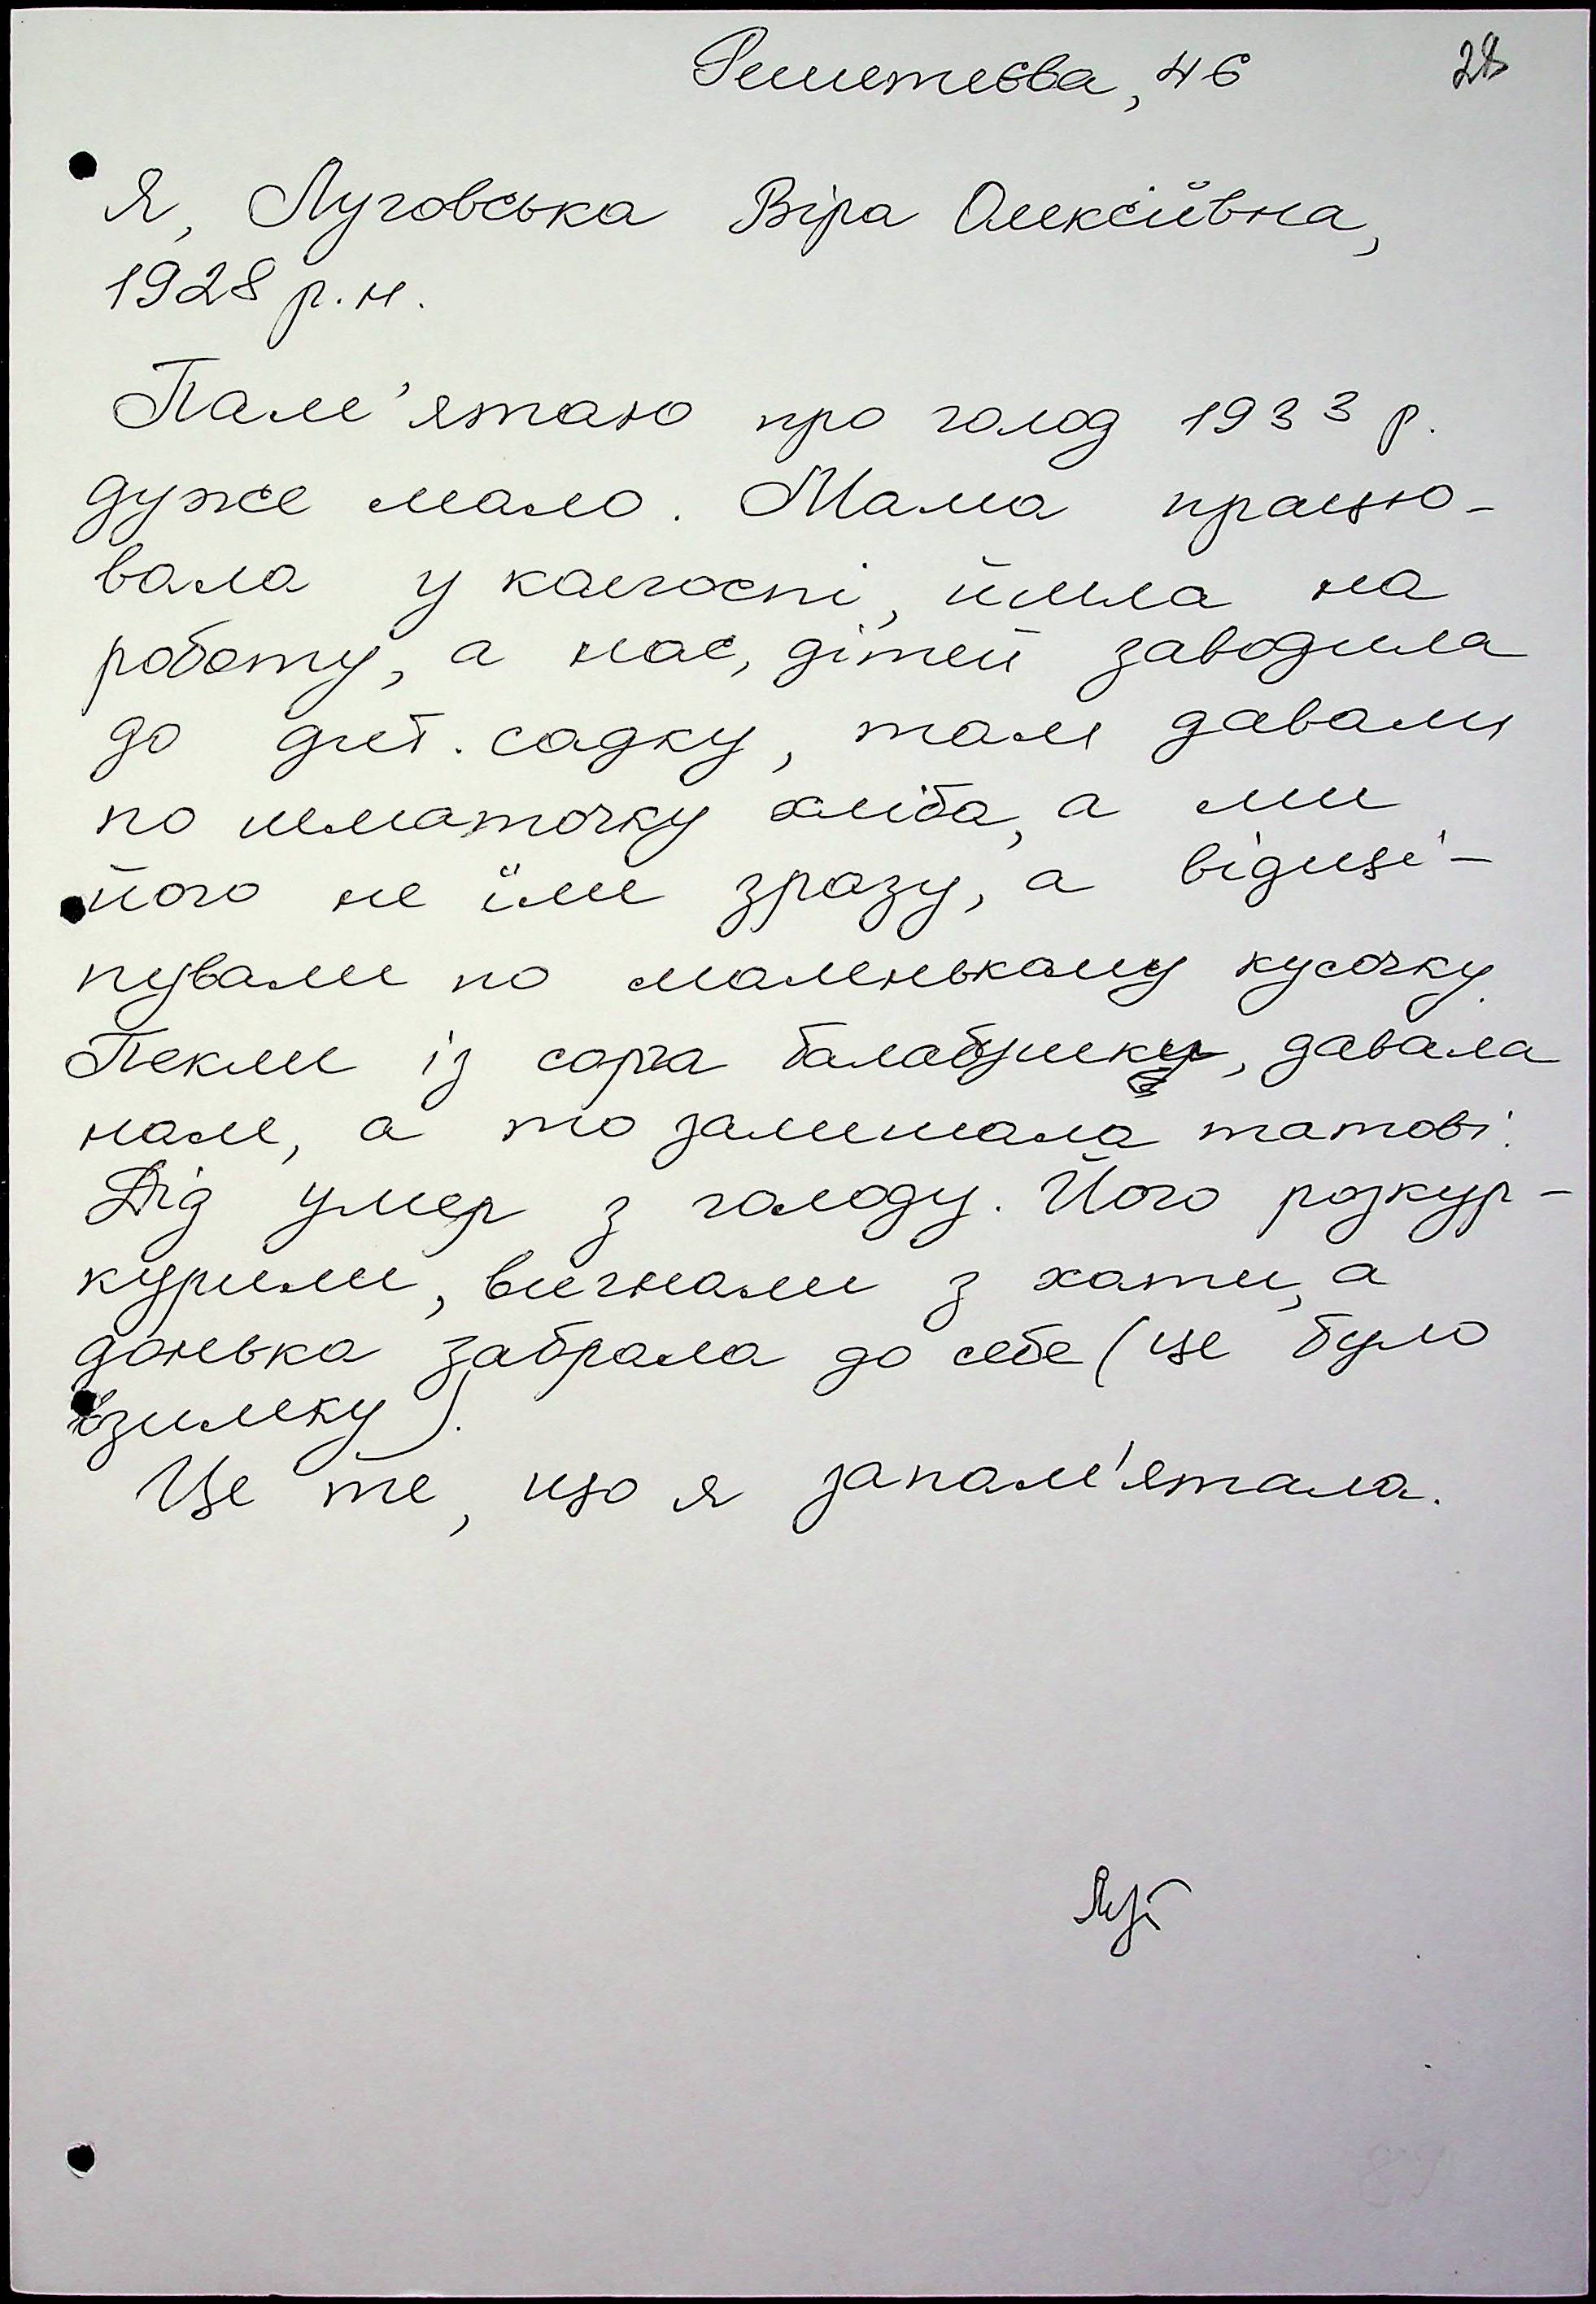 Решетєєва, 46 28
Я, Луговська Віра Олексіївна,
1928 р.н.
Пам'ятаю про голод 1933 р.
дуже мало. Мама працю-
вала у колгоспі, йшла на
роботу, а нас, дітей заводила
до дит. садку, там давали
по шматочку хліба, а ми
його не їли зразу, а відщі-
пували по маленькому кусочку.
Пекли із сорга балабушку, давала
нам, а то залишала татові.
Дід умер з голоду. Його розкур-
курили, вигнали з хати, а
донька забрала до себе (це було
взимку).
Це те, що я запам'ятала.